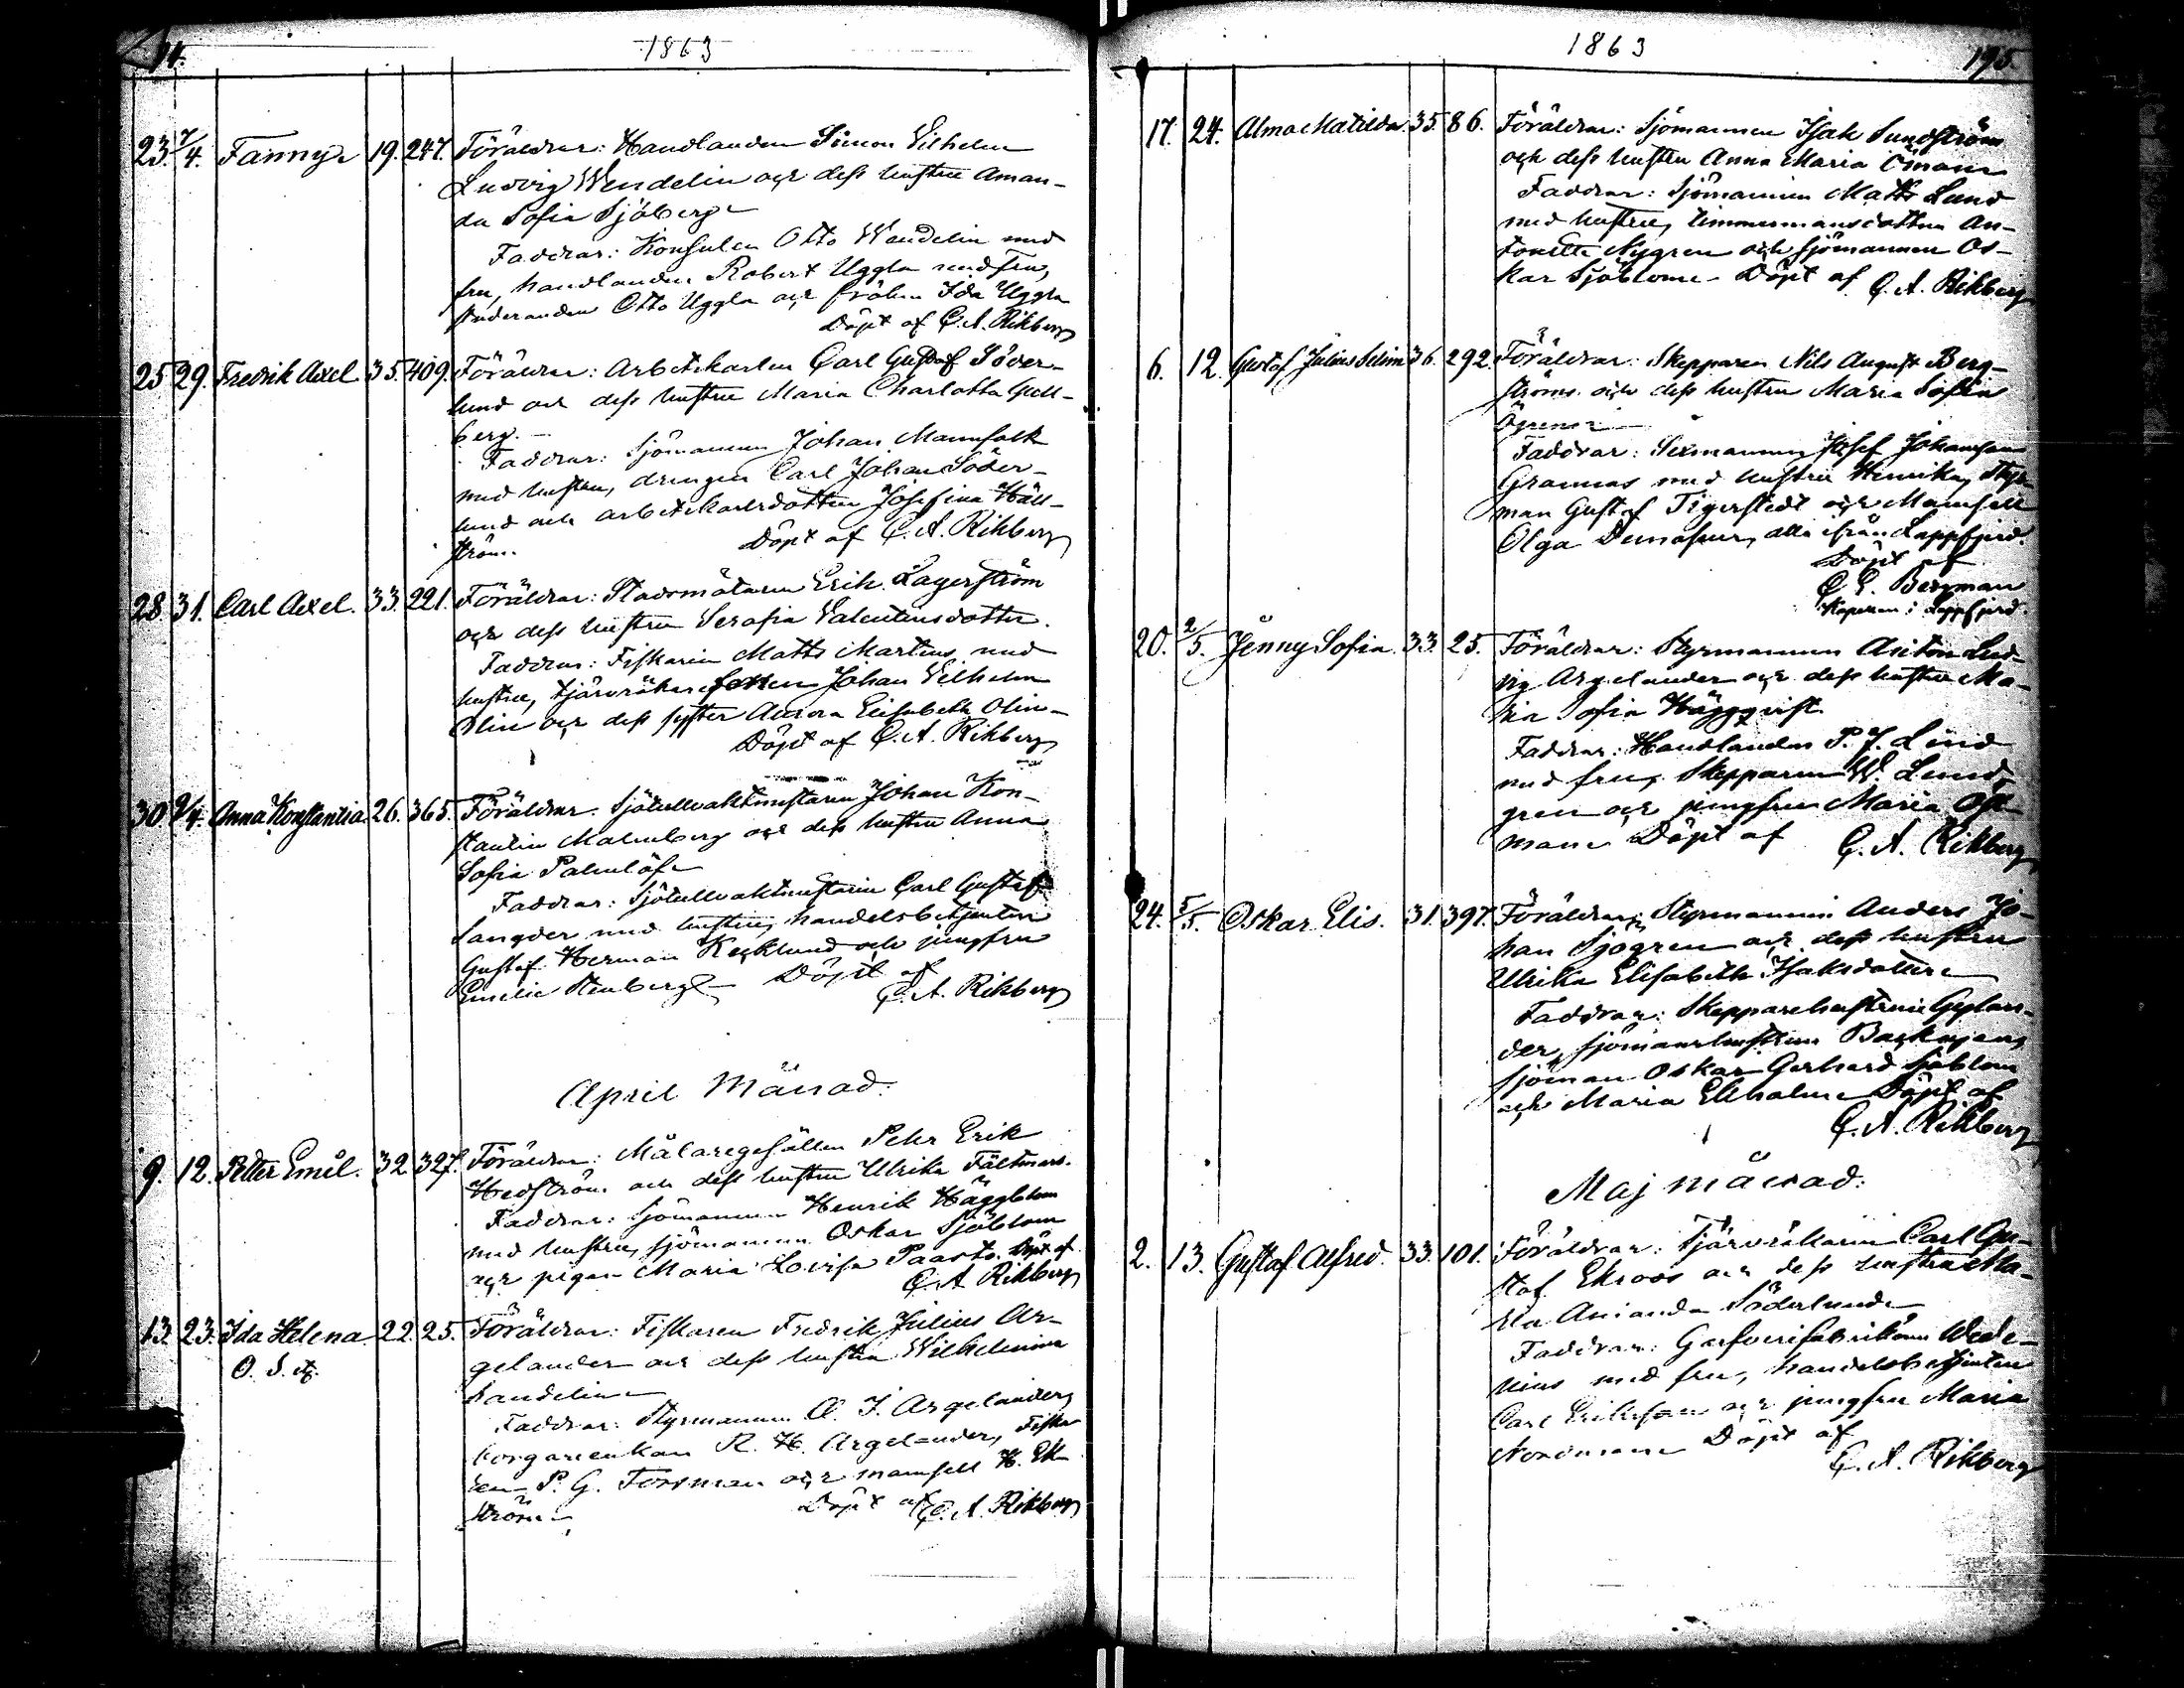 1863
23. 7/4. Fanny 19. 247. Föräldrar: Handlanden Simon Vilhelm
Ludvig Wendelin och dess hustru Aman-
da Sofia Sjöberg
Faddrar: Konsulen Otto Wendelin med
fru, handlanden Robert Uggla med fru,
studeranden Otto Uggla och fröken Ida Uggla
Döpt af C. A. Rikberg
25 29. Fredrik Axel. 35. 409. Föräldrar: Arbetskarlen Carl Gustaf Söder-
lund och dess hustru Maria Charlotta Gull-
berg.
Faddrar: Sjömannen Johan Mannfolk
med hustru, drengen Carl Johan Söder-
lund och arbetskarlsdottren Josefina Häll-
ström. Döpt af C. A. Rikberg
28 31. Carl Axel. 33. 221. Föräldrar: Stadsmätaren Erik Lagerström
och dess hustru Serafia Valentinsdotter.
Faddrar: Fiskaren Matts Martens med
hustru, tjärvräkare Johan Vilhelm
Olin och dess syster Aurora Elisabeth Olin
Döpt af C. A. Rikberg
30. 9/4. Anna Konstantia 26. 365. Föräldrar: Sjötullvaktmästaren Johan Kon-
stantin Malmberg och dess hustru Anna
Sofia Palmlöf
Faddrar: Sjötullvaktmästaren Carl Gustaf
Sangder med hustru, handelsbetjenten
Gustaf Herman Kecklund och jungfru
Emelie Stenberg Döpt af
C. A. Rikberg
April Månad:
9. 12. Petter Emil. 32. 327. Föräldrar: Målaregesällen Pehr Erik
Hedström och dess hustru Ulrika Fältmars.
Faddrar: Sjömannen Henrik Häggblom
med hustru, sjömannen Oskar Sjöblom
och pigan Maria Lovisa Paasto. Döpt af
C. A. Rikberg
13. 23. Ida Helena 22. 25. Föräldrar: Fiskaren Fredrik Julius Ar-
O. S. gelander och dess hustru Wilhelmina
Sandelin
Faddrar: Styrmannen A. L. Argelander,
borgareenkan R. H. Argelander, Fiska-
ren P. G. Forsman och mamsell H. Ek-
ström Döpt af C. A. Rikberg
1863 195.
17. 24. Alma Matilda. 35. 86. Föräldrar: Sjömannen Isak Sundström
och dess hustru Anna Maria Öman
Faddrar: Sjömannen Matts Lund
med hustru, timmermansdottren An-
tonette Nygren och sjömannen Os-
kar Sjöblom Döpt af C. A. Rikberg
6. 12. Gustaf Julius Selim 36. 292. Föräldrar: Skepparen Nils August Berg-
ström och dess hustru Maria Sofia
Ögren
Faddrar: Sexmannen Josef Johansson
Grannas med hustru Henrika, Styr-
man Gustaf Tigerstedt och Mamsell
Olga alla ifrån Lappfjerd.
Döpt af
C. E. Bergman
Kaplan i Lappfjerd.
20. 2/5. Jenny Sofia. 33. 25. Föräldrar: Styrmannen Anton Lud-
vig Argelander och dess hustru Ma-
ria Sofia Häggqvist.
Faddrar: Handlanden P. J. Lind
med fru, Skepparen W. Lund-
gren och jungfru Maria Öst-
man Döpt af C. A. Rikberg
24. 5/5. Oskar Elis. 31. 397. Föräldrar: Styrmannen Anders Jo-
han Sjögren och dess hustru
Ulrika Elisabeth Isaksdotter
Faddrar: Skepparehustrun Gylan-
der, sjömanshustrun
sjöman Oskar Gerhard Sjöblom
och Maria Ekholm Döpt af
C. A. Rikberg
Maj månad:
2. 13. Gustaf Alfred. 33. 101. Föräldrar: Tjärvräkaren Carl Gu-
staf Ekroos och dess hustru Ma-
ria Amanda Söderlund
Faddrar: Garfverifabrikören Wede-
nius med fru, handelsbetjenten
Carl Eriksson och jungfru Maria
Nordman Döpt af
C. A. Rikberg